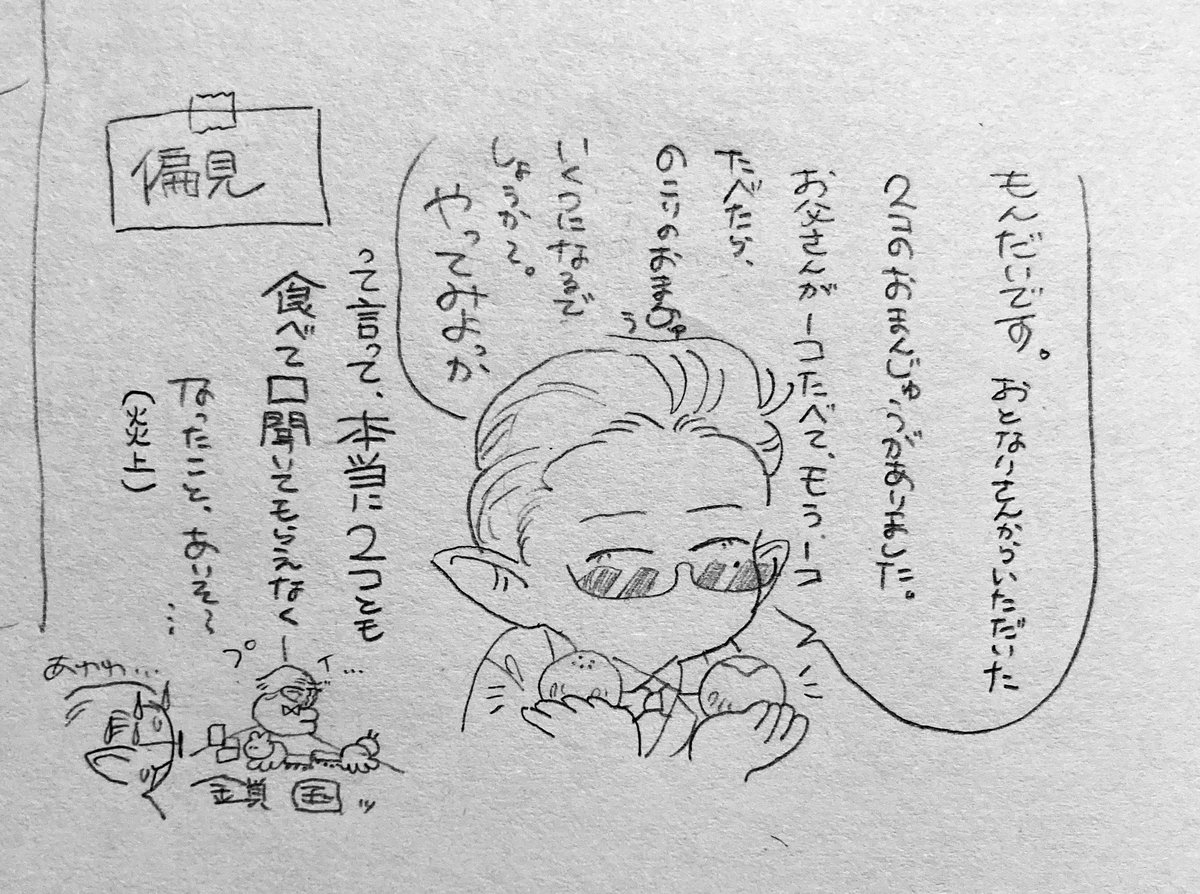 もんだいです。おとないさんからいただいた
2コのおまんじゅうがありました。
お父さんが一コたべて、もう一コ
たべたら、
のこりのおまんじゅう
いくつになるで
しょうかて。
やってみよっか
偏見
って言って、本当に2コとも
食べて口聞いてもらえなく
なったこと、ありそ〜
…
(炎上)
プイ…
あわわ…
鎖国ッ